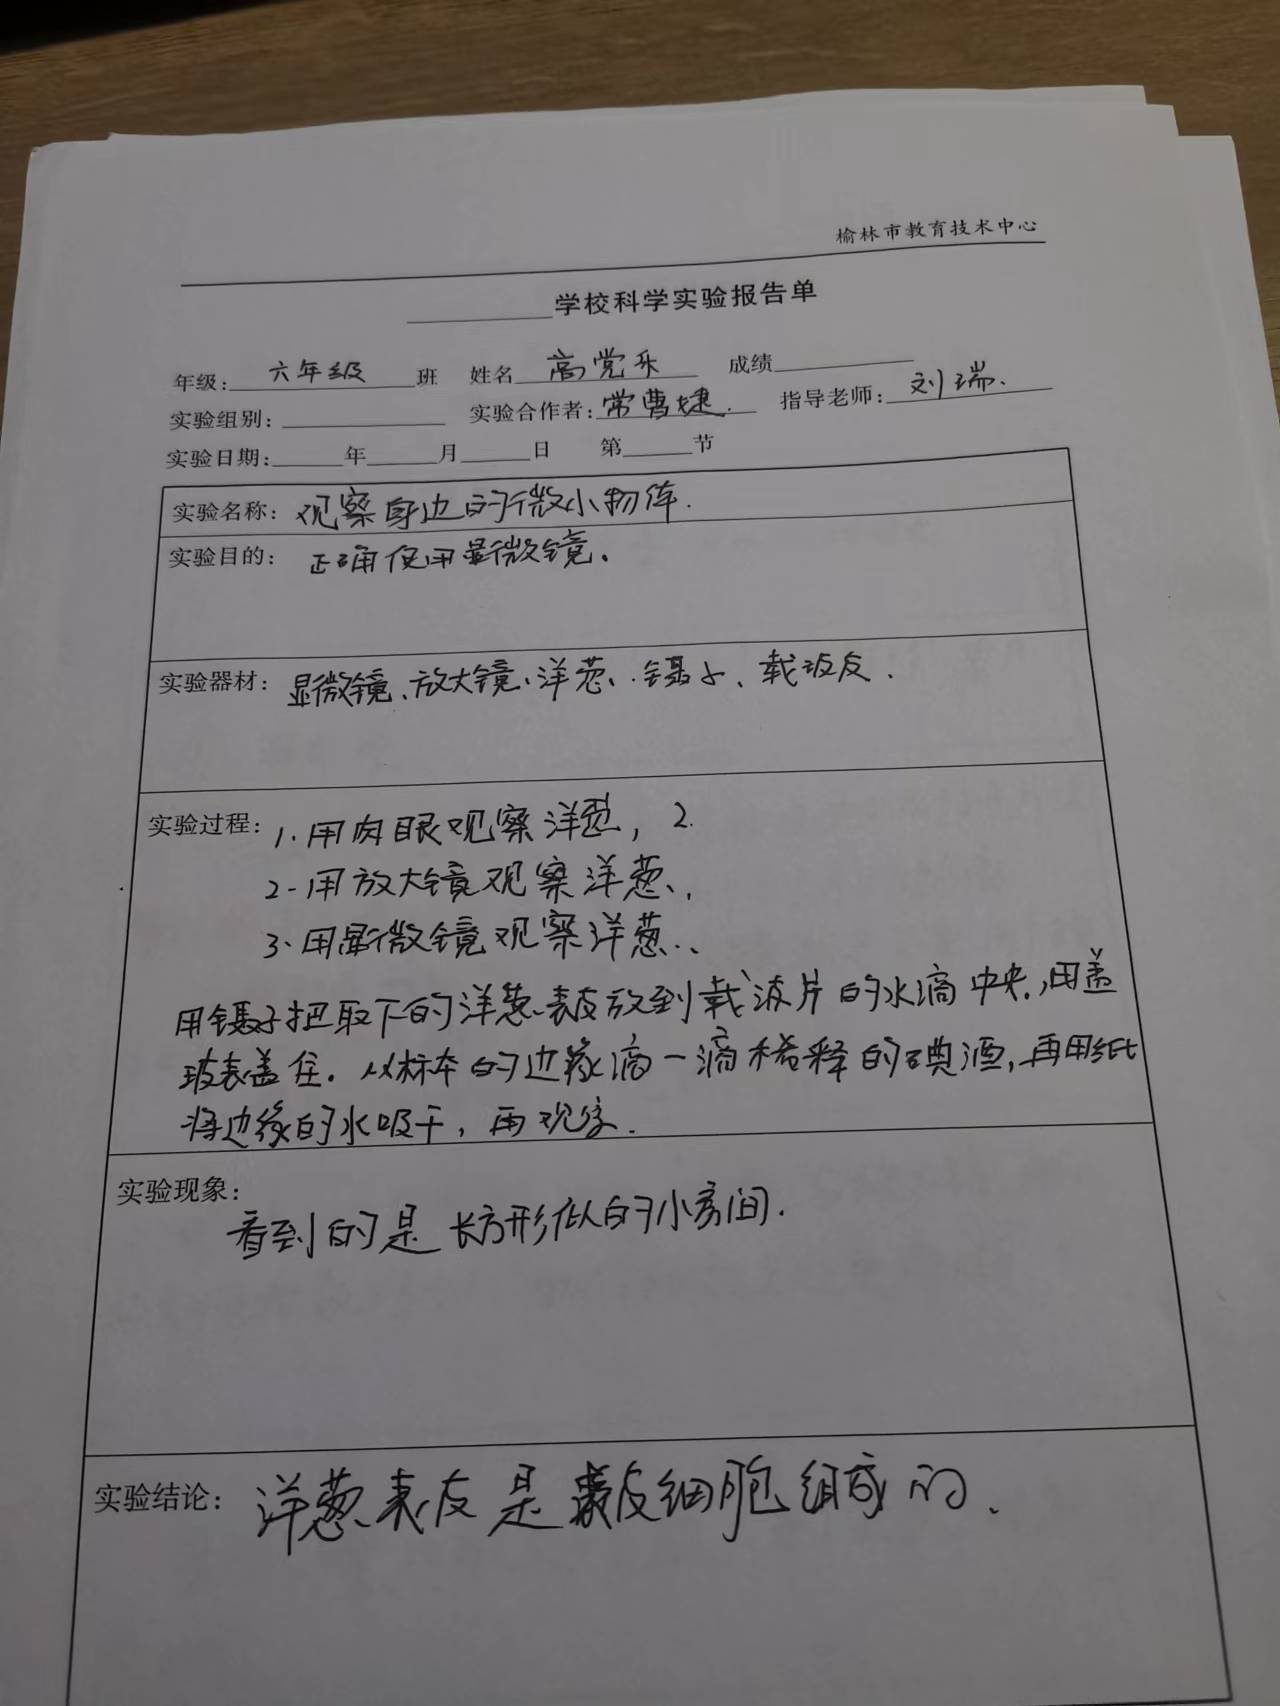 榆林市教育技术中心
学校科学实验报告单
年级:六年级班 姓名高党乐 成绩
实验组别: 实验合作者:常曹婕. 指导老师:刘瑞.
实验日期: 年 月 日 第 节
实验名称: 观察身边的微小物体.
实验目的: 正确使用显微镜。
实验器材: 显微镜、放大镜、洋葱、镊子、载玻皮.
实验过程: 1.用肉眼观察洋葱, 2.
2-用放大镜观察洋葱、
3、用显微镜观察洋葱、
用镊子把取下的洋葱表皮放到载波片的水滴中央,用盖
玻表盖住.从标本的边缘滴一滴稀释的碘酒,再用纸
将边缘的水吸干,再观察.
实验现象:
看到的是长方形似的小房间.
实验结论: 洋葱表皮是表皮细胞组成的.